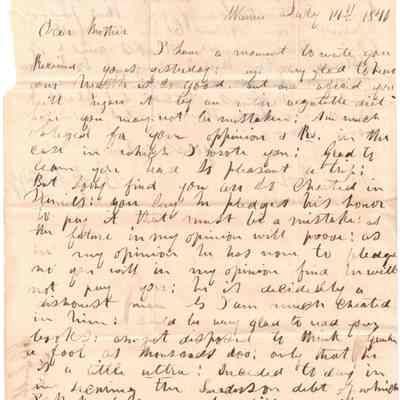 July 14th 1840
Dear Mother
I have a moment to write you
Received yours yesterday: am very glad to hear
your health is so good. but am afraid you
will injure it by an vegetable diet
hope you may not be mistaken: Am much
obliged for your opinion &c. in the
case in which I wrote you: Glad to
learn you had so pleasant a trip:
But sorry find you are so cheated in
you say he pledges his honor
to pay it that must be a mistake: as
the future in my opinion will prove: as
in my opinion he has none to pledge
no you will in my opinion find he will
not pay you: he is decidedly a
dishonest man so I am much cheated
in him: be very glad to read your
books: am not disposed to think
a fool as thousands do: only that he
is a little ultra: to day in
in securing the debt of which